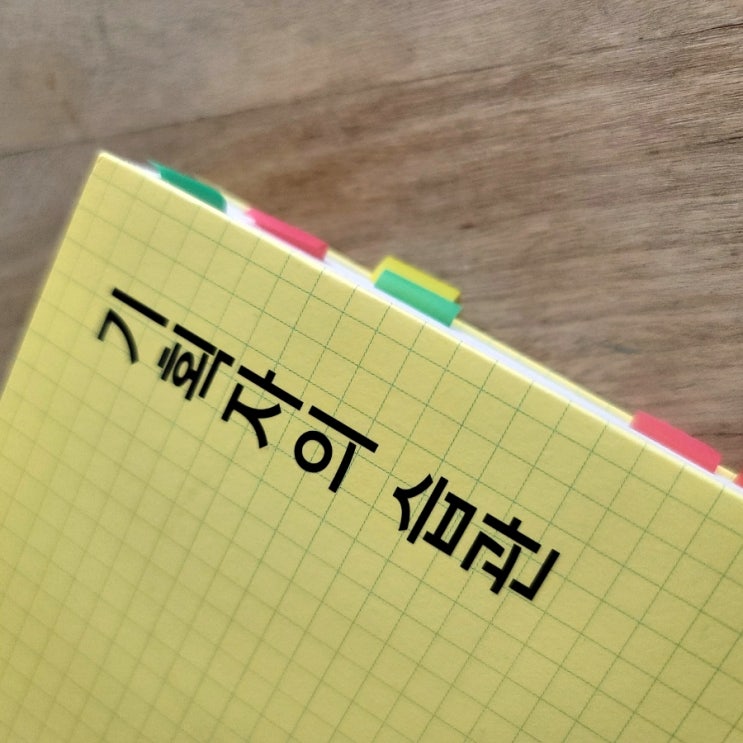 기획자의 습관